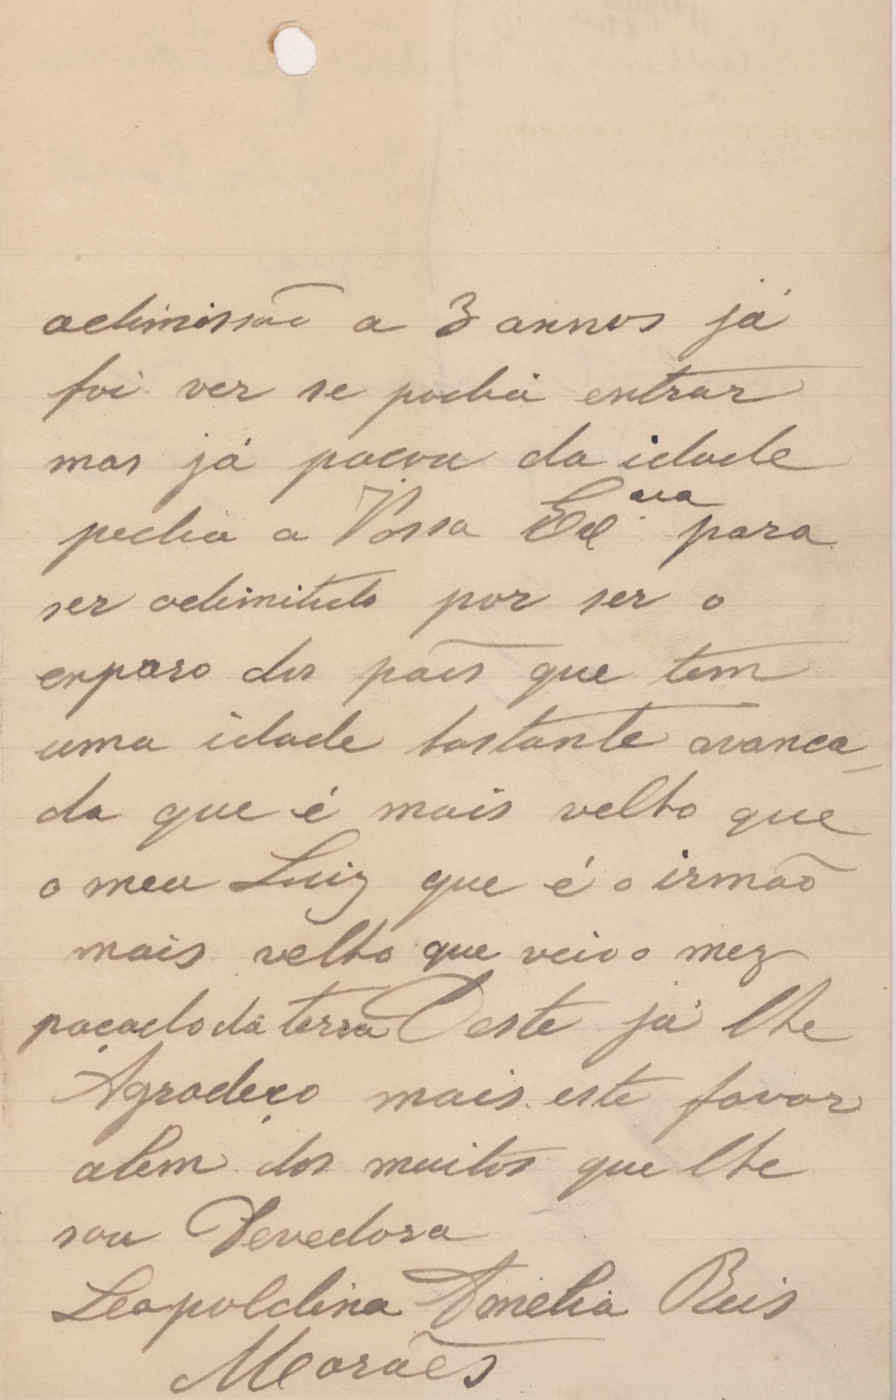 adimissão a 3 annos já
foi ver se podia entrar
mas já pacava da idade
pedia a Vossa Exᵃ para
ser adimitido por ser o
enparo dos pais que tem
uma idade bastante avanca
da que é mais velho que
o meu Luiz que é o irmão
mais velho que veio o mez
pacado da terra Deste já lhe
Agradeço mais este favor
alem dos muitos que lhe
sou Devedora
Leopoldina Amelia Reis
Morães